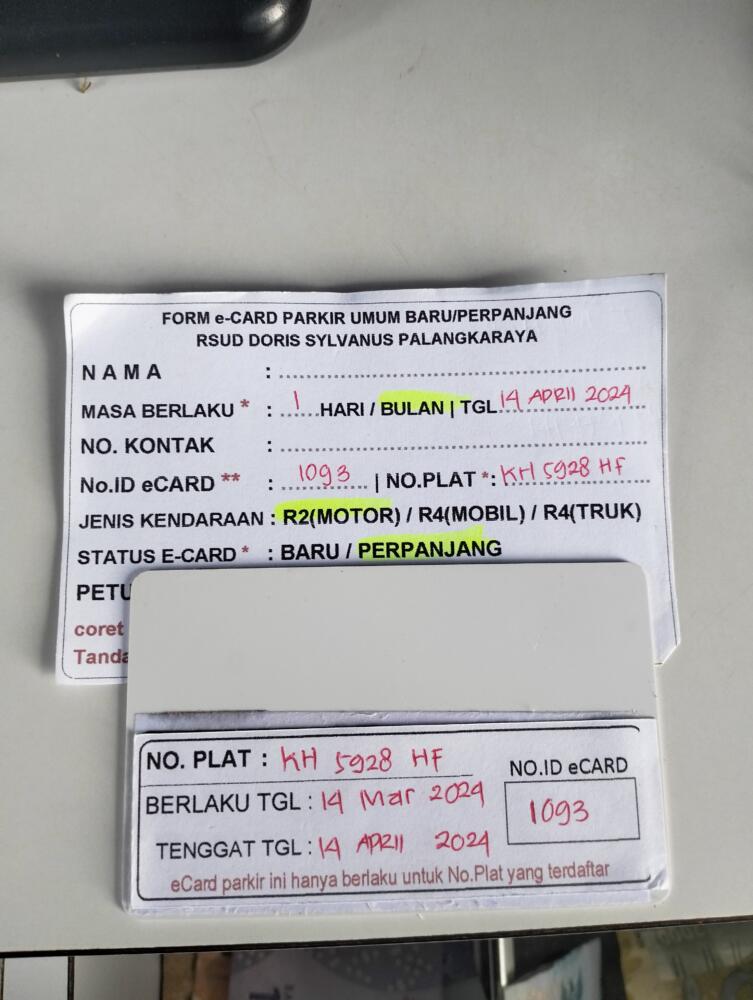 FORM e-CARD PARKIR UMUM BARU/PERPANJANG
RSUD DORIS SYLVANUS PALANGKARAYA
N A M A : ........................................
MASA BERLAKU * : ..1...HARI / BULAN | TGL 14 APRIl 2024
NO. KONTAK : ........................................
No.ID eCARD ** : ...1093... | NO.PLAT *: KH 5928 HF
JENIS KENDARAAN : R2(MOTOR) / R4(MOBIL) / R4(TRUK)
STATUS E-CARD * : BARU / PERPANJANG
PETU
coret
Tanda
NO. PLAT : KH 5928 HF
NO.ID eCARD
BERLAKU TGL : 14 Mar 2024
1093
TENGGAT TGL : 14 APRIl 2024
eCard parkir ini hanya berlaku untuk No.Plat yang terdaftar